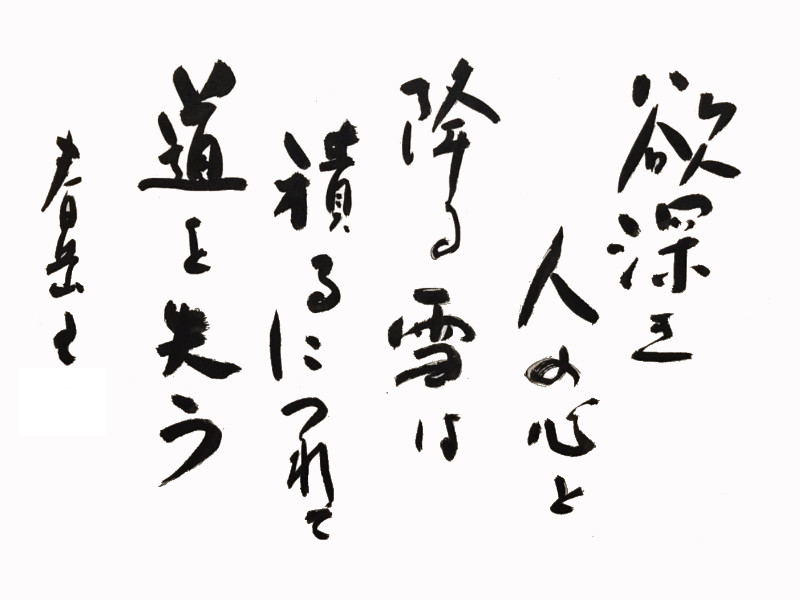 欲深き
人の心と
降る雪は
積るにつれて
道を失う
春岳